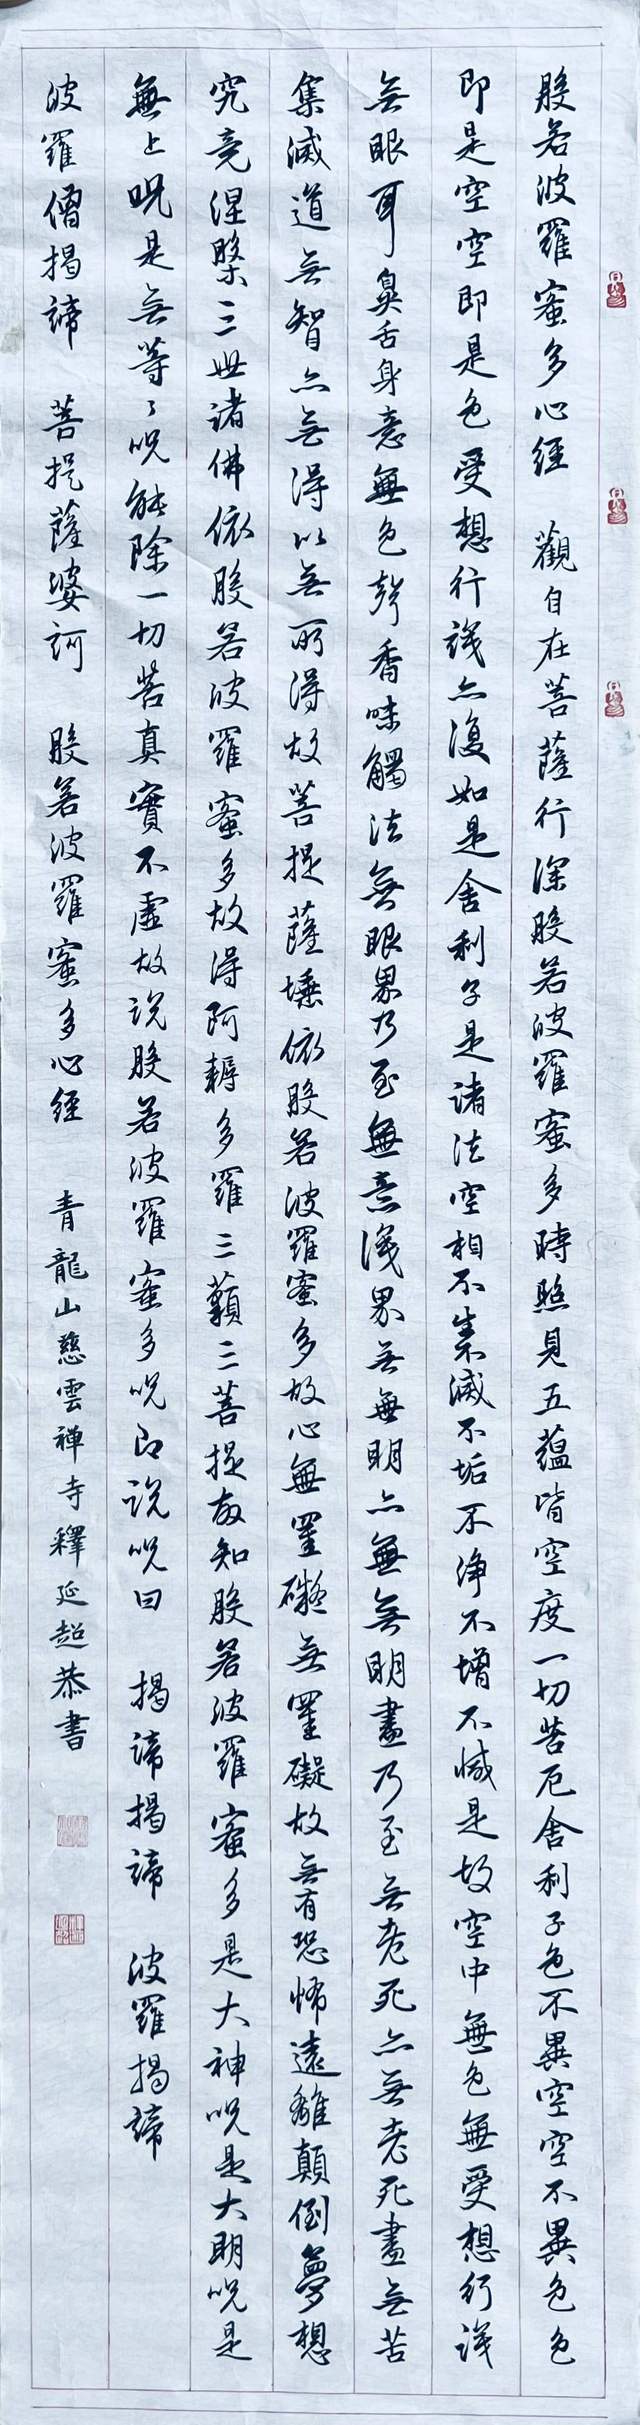 般若波羅蜜多心經 觀自在菩薩行深般若波羅蜜多時照見五蘊皆空度一切苦厄舍利子色不異空空不異色色
即是空空即是色受想行識亦復如是舍利子是諸法空相不生不滅不垢不淨不增不減是故空中無色無受想行識
無眼耳鼻舌身意無色聲香味觸法無眼界乃至無意識界無無明亦無無明盡乃至無老死亦無老死盡無苦
集滅道無智亦無得以無所得故菩提薩埵依般若波羅蜜多故心無罣礙無罣礙故無有恐怖遠離顛倒夢想
究竟涅槃三世諸佛依般若波羅蜜多故得阿耨多羅三藐三菩提故知般若波羅蜜多是大神呪是大明呪是
無上呪是無等々呪能除一切苦真實不虛故説般若波羅蜜多呪即説呪曰 揭諦揭諦 波羅揭諦
波羅僧揭諦 菩提薩婆訶 般若波羅蜜多心經 青龍山慈雲禅寺釋延超恭書